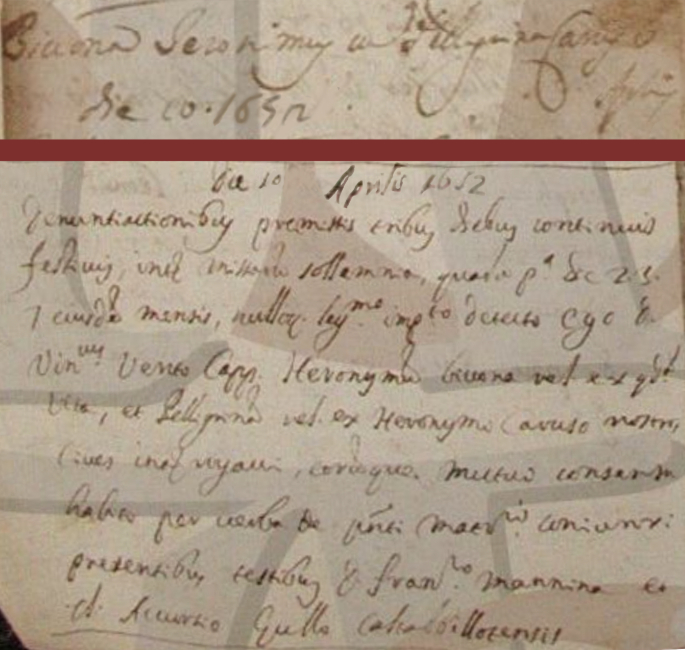 Bivona Jeronimus cum Pelligrina Caruso
die 10. 1652 Aprilis
die 10 Aprilis 1652
Denuntiationibus premissis tribus diebus continuis
festivis, inter missarum sollemnia, quarum p.ª die 2. 3.
7 eiusdem mensis, nulloq. leg.mo imp.to detecto Ego D.
Vin.us Vento Capp. Heronymum bivona rel. ex qd.
Vita, et Pelligrinam rel. ex Heronymo Caruso
Cives interrogavi, eorumque mutuo consensu
habito per verba de pnti matr.io coniunxi
presentibus testibus D. Fran.co Mannina et
cl. Accursio Gullo Calatabillotensis